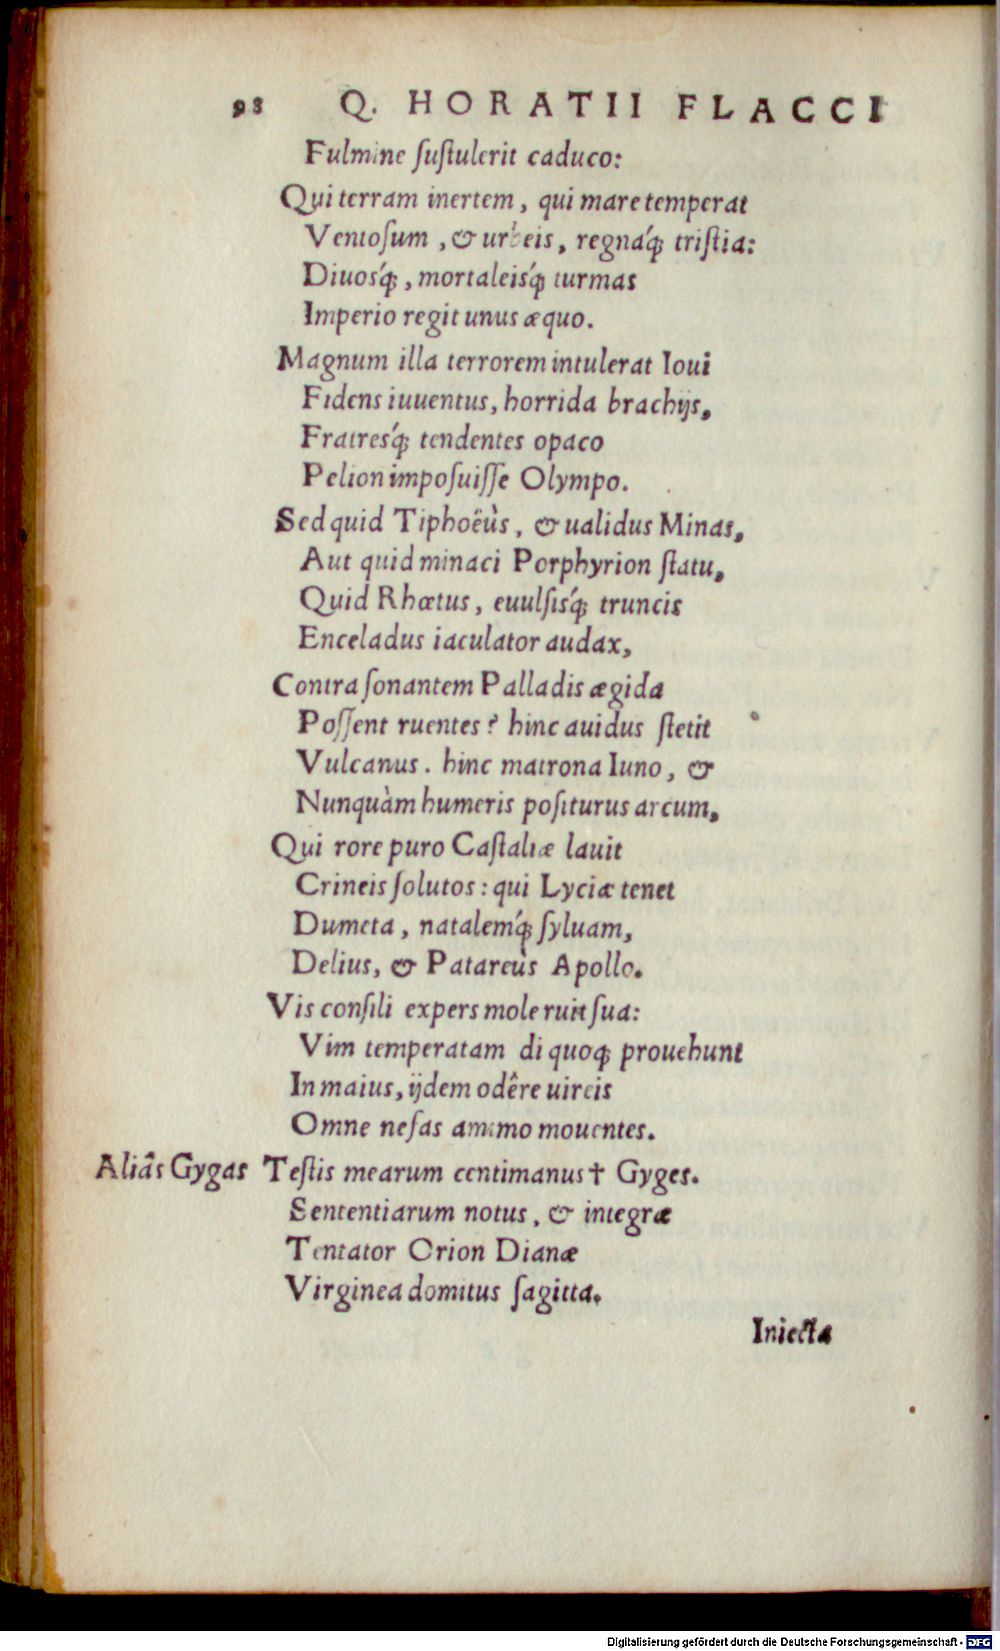 98 Q. HORATII FLACCI
Fulmine ſuſtulerit caduco:
Qui terram inertem, qui mare temperat
Ventoſum, & urbeis, regnáq; triſtia:
Diuosq́;, mortaleisq́; turmas
Imperio regit unus æquo.
Magnum illa terrorem intulerat Ioui
Fidens iuuentus, horrida brachijs,
Fratresq́; tendentes opaco
Pelion impoſuiſſe Olympo.
Sed quid Tiphoëùs, & ualidus Minas,
Aut quid minaci Porphyrion ſtatu,
Quid Rhœtus, euulſisq́; truncis
Enceladus iaculator audax,
Contra ſonantem Palladis ægida
Poſſent ruentes? hinc auidus ſtetit
Vulcanus. hinc matrona Iuno, &
Nunquàm humeris poſiturus arcum,
Qui rore puro Caſtaliæ lauit
Crineis ſolutos: qui Lyciæ tenet
Dumeta, natalemq́; ſyluam,
Delius, & Patareùs Apollo.
Vis conſili expers mole ruit ſua:
Vim temperatam di quoq; prouehunt
In maius, ijdem odêre uireis
Omne nefas animo mouentes.
Aliâs Gygas Teſtis mearum centimanus† Gyges.
Sententiarum notus, & integræ
Tentator Orion Dianæ
Virginea domitus ſagitta.
Iniecta
Digitalisierung gefördert durch die Deutsche Forschungsgemeinschaft - DFG